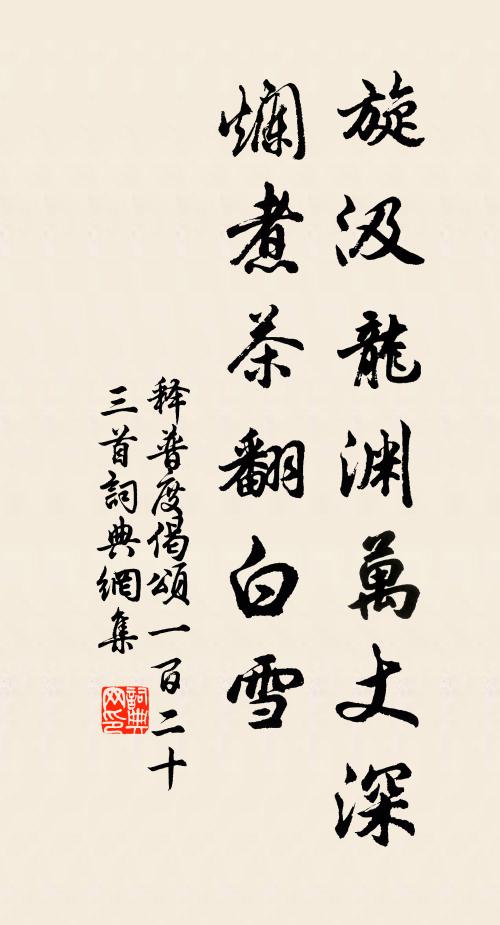 旋汲龍渊萬丈深
爛煮茶翻白雪
释普度偈頌一百二十
三首詞典網集
詞典网印